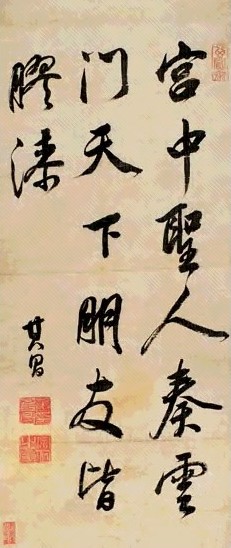 宮中聖人奏雲
門天下朋友皆
膠漆
其昌